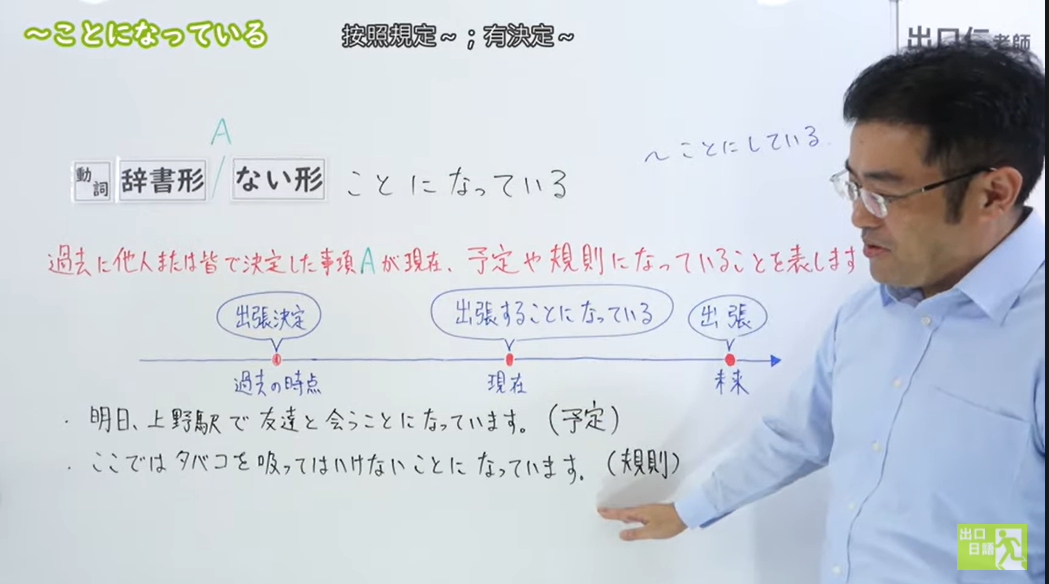 ～ことになっている
按照規定～；有決定～
出口仁老師
A
動詞 辞書形 / ない形 ことになっている
～ことにしている
過去に他人または皆で決定した事項Aが現在、予定や規則になっていることを表します
出張決定 出張することになっている 出張
過去の時点 現在 未来
・明日、上野駅で友達と会うことになっています。(予定)
・ここではタバコを吸ってはいけないことになっています。(規則)
出口
日語